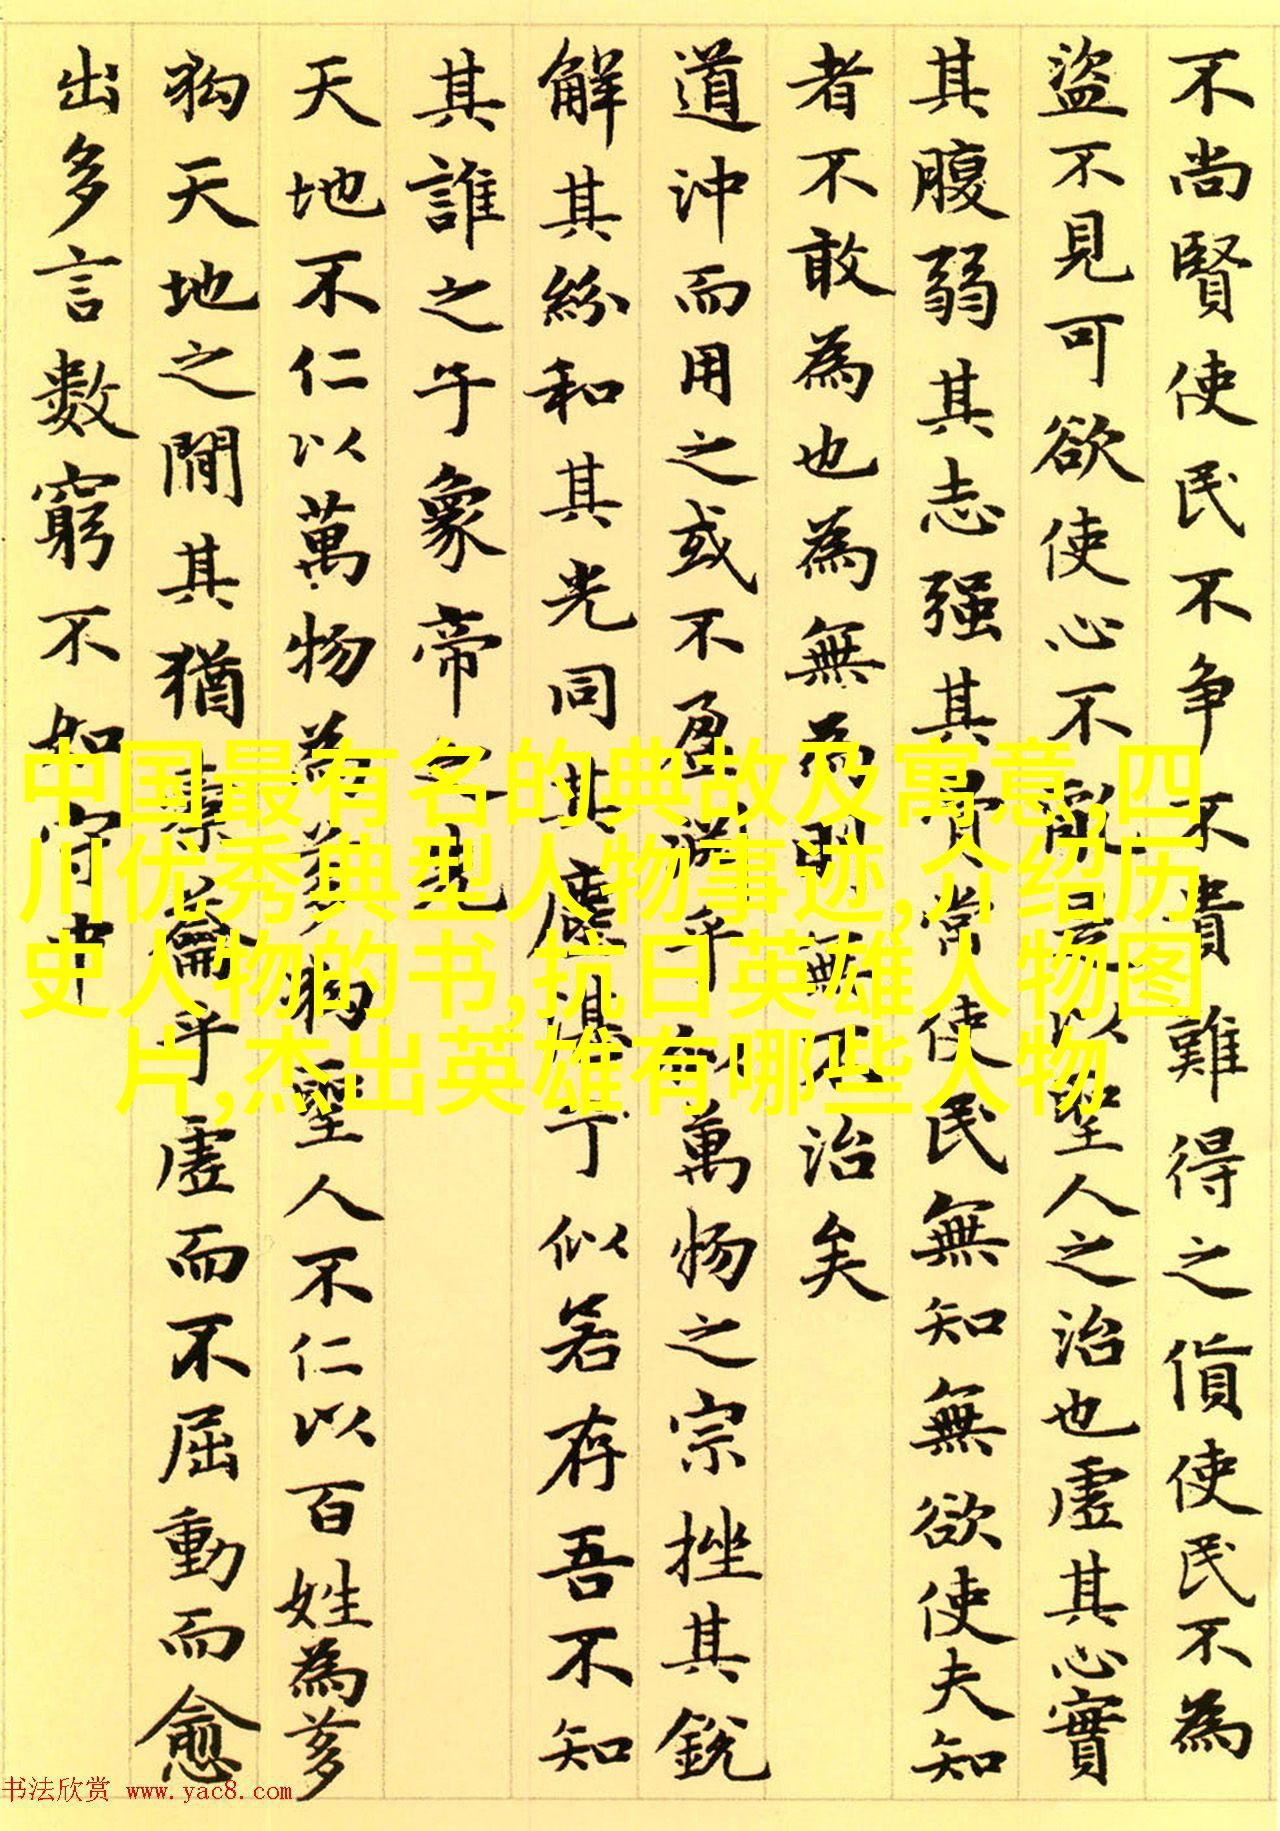 不尚賢使民不争不貴難得之貨使民不為
盜不見可欲使心不亂是以聖人之治也虛其心實
其腹弱其志强其骨常使民無知無欲使夫知
者不敢為也為無為則無不治矣
道沖而用之或不盈淵乎似萬物之宗挫其銳
解其紛和其光同其塵湛乎似若存吾不知
其誰之子象帝之先
天地不仁以萬物為芻狗聖人不仁以百姓為芻
狗天地之間其猶橐籥乎虛而不屈動而愈
出多言數窮不如守中
中国最有名的典故及寓意,四
川优秀典型人物事迹,介绍历
史人物的书,抗日英雄人物图
片,杰出英雄有哪些人物
书法欣赏 www.yac8.com